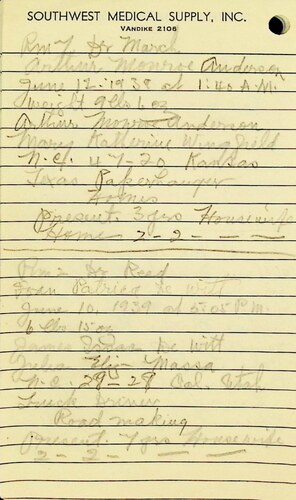 SOUTHWEST MEDICAL SUPPLY, INC.
VANDIKE 2106
Rm 7 Dr March
Arthur Monroe Anderson
June 12: 1939 at 1:40 A.M.
Weight 9 lbs 1 oz
Arthur Monroe Anderson
Mary Katherine Wingfield
N.C. 47-20 Kansas
Texas Paperhanger
Homes
Present. 3 yrs Housewife
Home 2-2 — — —
Rm 2 Dr Reed
Patricia De Witt
June 10, 1939 at 5:05 P.M.
6 lbs 15 oz
James De Witt
Julia Massa
N.C. 29-28 Cal. Utah
Truck Driver
Road making
Present 7 yrs Housewife
2-2- — — —